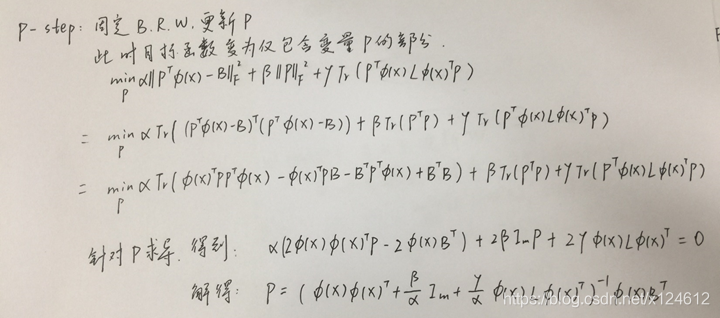 P-step: 固定 B.R.W. 更新 P
此时目标函数变为仅包含变量 P 的部分.
min_P α||P^Tϕ(x) - B||_F^2 + β||P||_F^2 + γ Tr(P^Tϕ(x)Lϕ(x)^TP)
= min_P α Tr((P^Tϕ(x)-B)^T(P^Tϕ(x)-B)) + β Tr(P^TP) + γ Tr(P^Tϕ(x)Lϕ(x)^TP)
= min_P α Tr(ϕ(x)^TPP^Tϕ(x) - ϕ(x)^TPB - B^TP^Tϕ(x) + B^TB) + β Tr(P^TP) + γ Tr(P^Tϕ(x)Lϕ(x)^TP)
针对 P 求导, 得到: α(2ϕ(x)ϕ(x)^TP - 2ϕ(x)B^T) + 2β I_m P + 2γ ϕ(x)Lϕ(x)^T = 0
解得: P = (ϕ(x)ϕ(x)^T + β/α I_m + γ/α ϕ(x)Lϕ(x)^T)^{-1} ϕ(x)B^T
https://blog.csdn.net/x124612